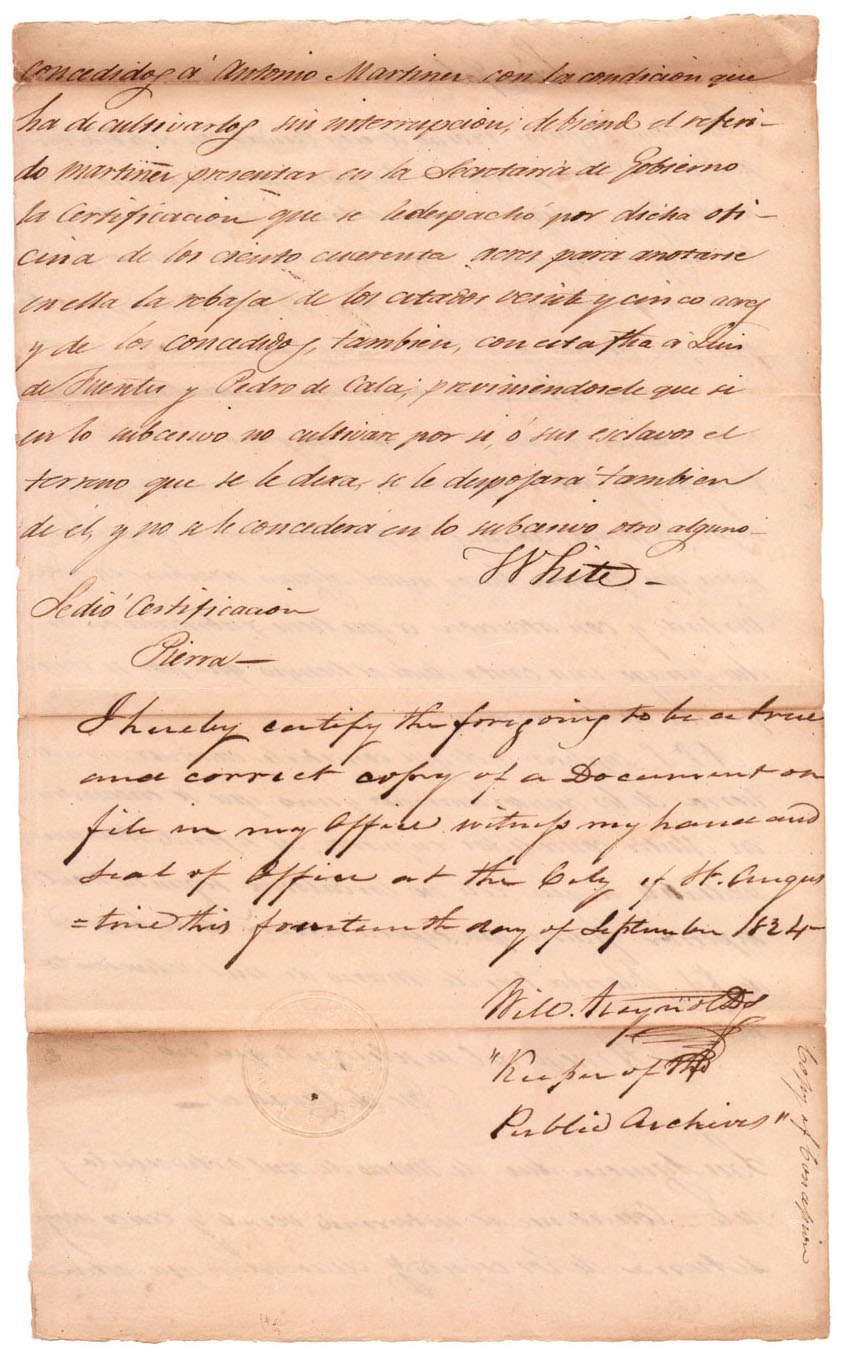 concedidos á Antonio Martinez con la condición que
ha de cultivarlos sin interrupción; debiendo el referi-
do Martinez presentar en la Secretaría de Gobierno
la Certificación que se ledespachó por dicha ofi-
cina de los ciento cuarenta acres para anotarse
en ella la rebaja de los citados veinte y cinco acres
y de los concedidos, tambien, con esta fha á Luis
de Fuentes y Pedro de Cala; previniéndosele que si
en lo subcesivo no cultivare por si, ó sus esclavos el
terreno que se le dexa, se le despojará tambien
de él, y no se le concederá en lo subcesivo otro alguno-
White-
Sedió Certificación
Pierra-
I hereby certify the foregoing to be a true
and correct copy of a Document on
file in my Office witness my hand and
seal of Office at the City of St. Augus
=tine this fourteenth day of September 1824-
Will. Reynolds
"Keeper of the
Public Archives"
Copy of Concession